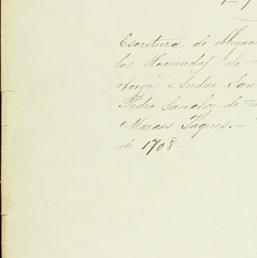 Escritura de
las Haciendas de
Andres San
Pedro Sanchez de
Marcos Vaques.—
de 1708—